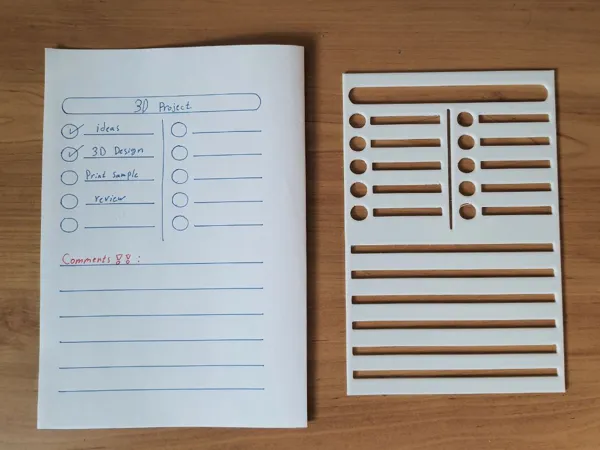 3D Project
ideas
3D Design
Print sample
review
Comments :